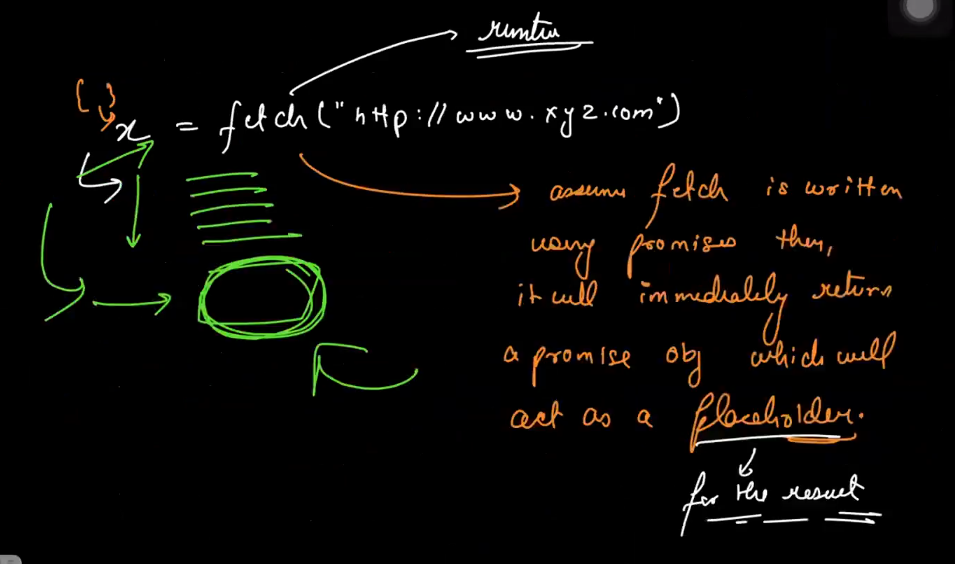 runtim
{ }
x = fetch("http://www.xyz.com")
assume fetch is written
using promises then,
it will immediately return
a promise obj which will
act as a placeholder.
for the result